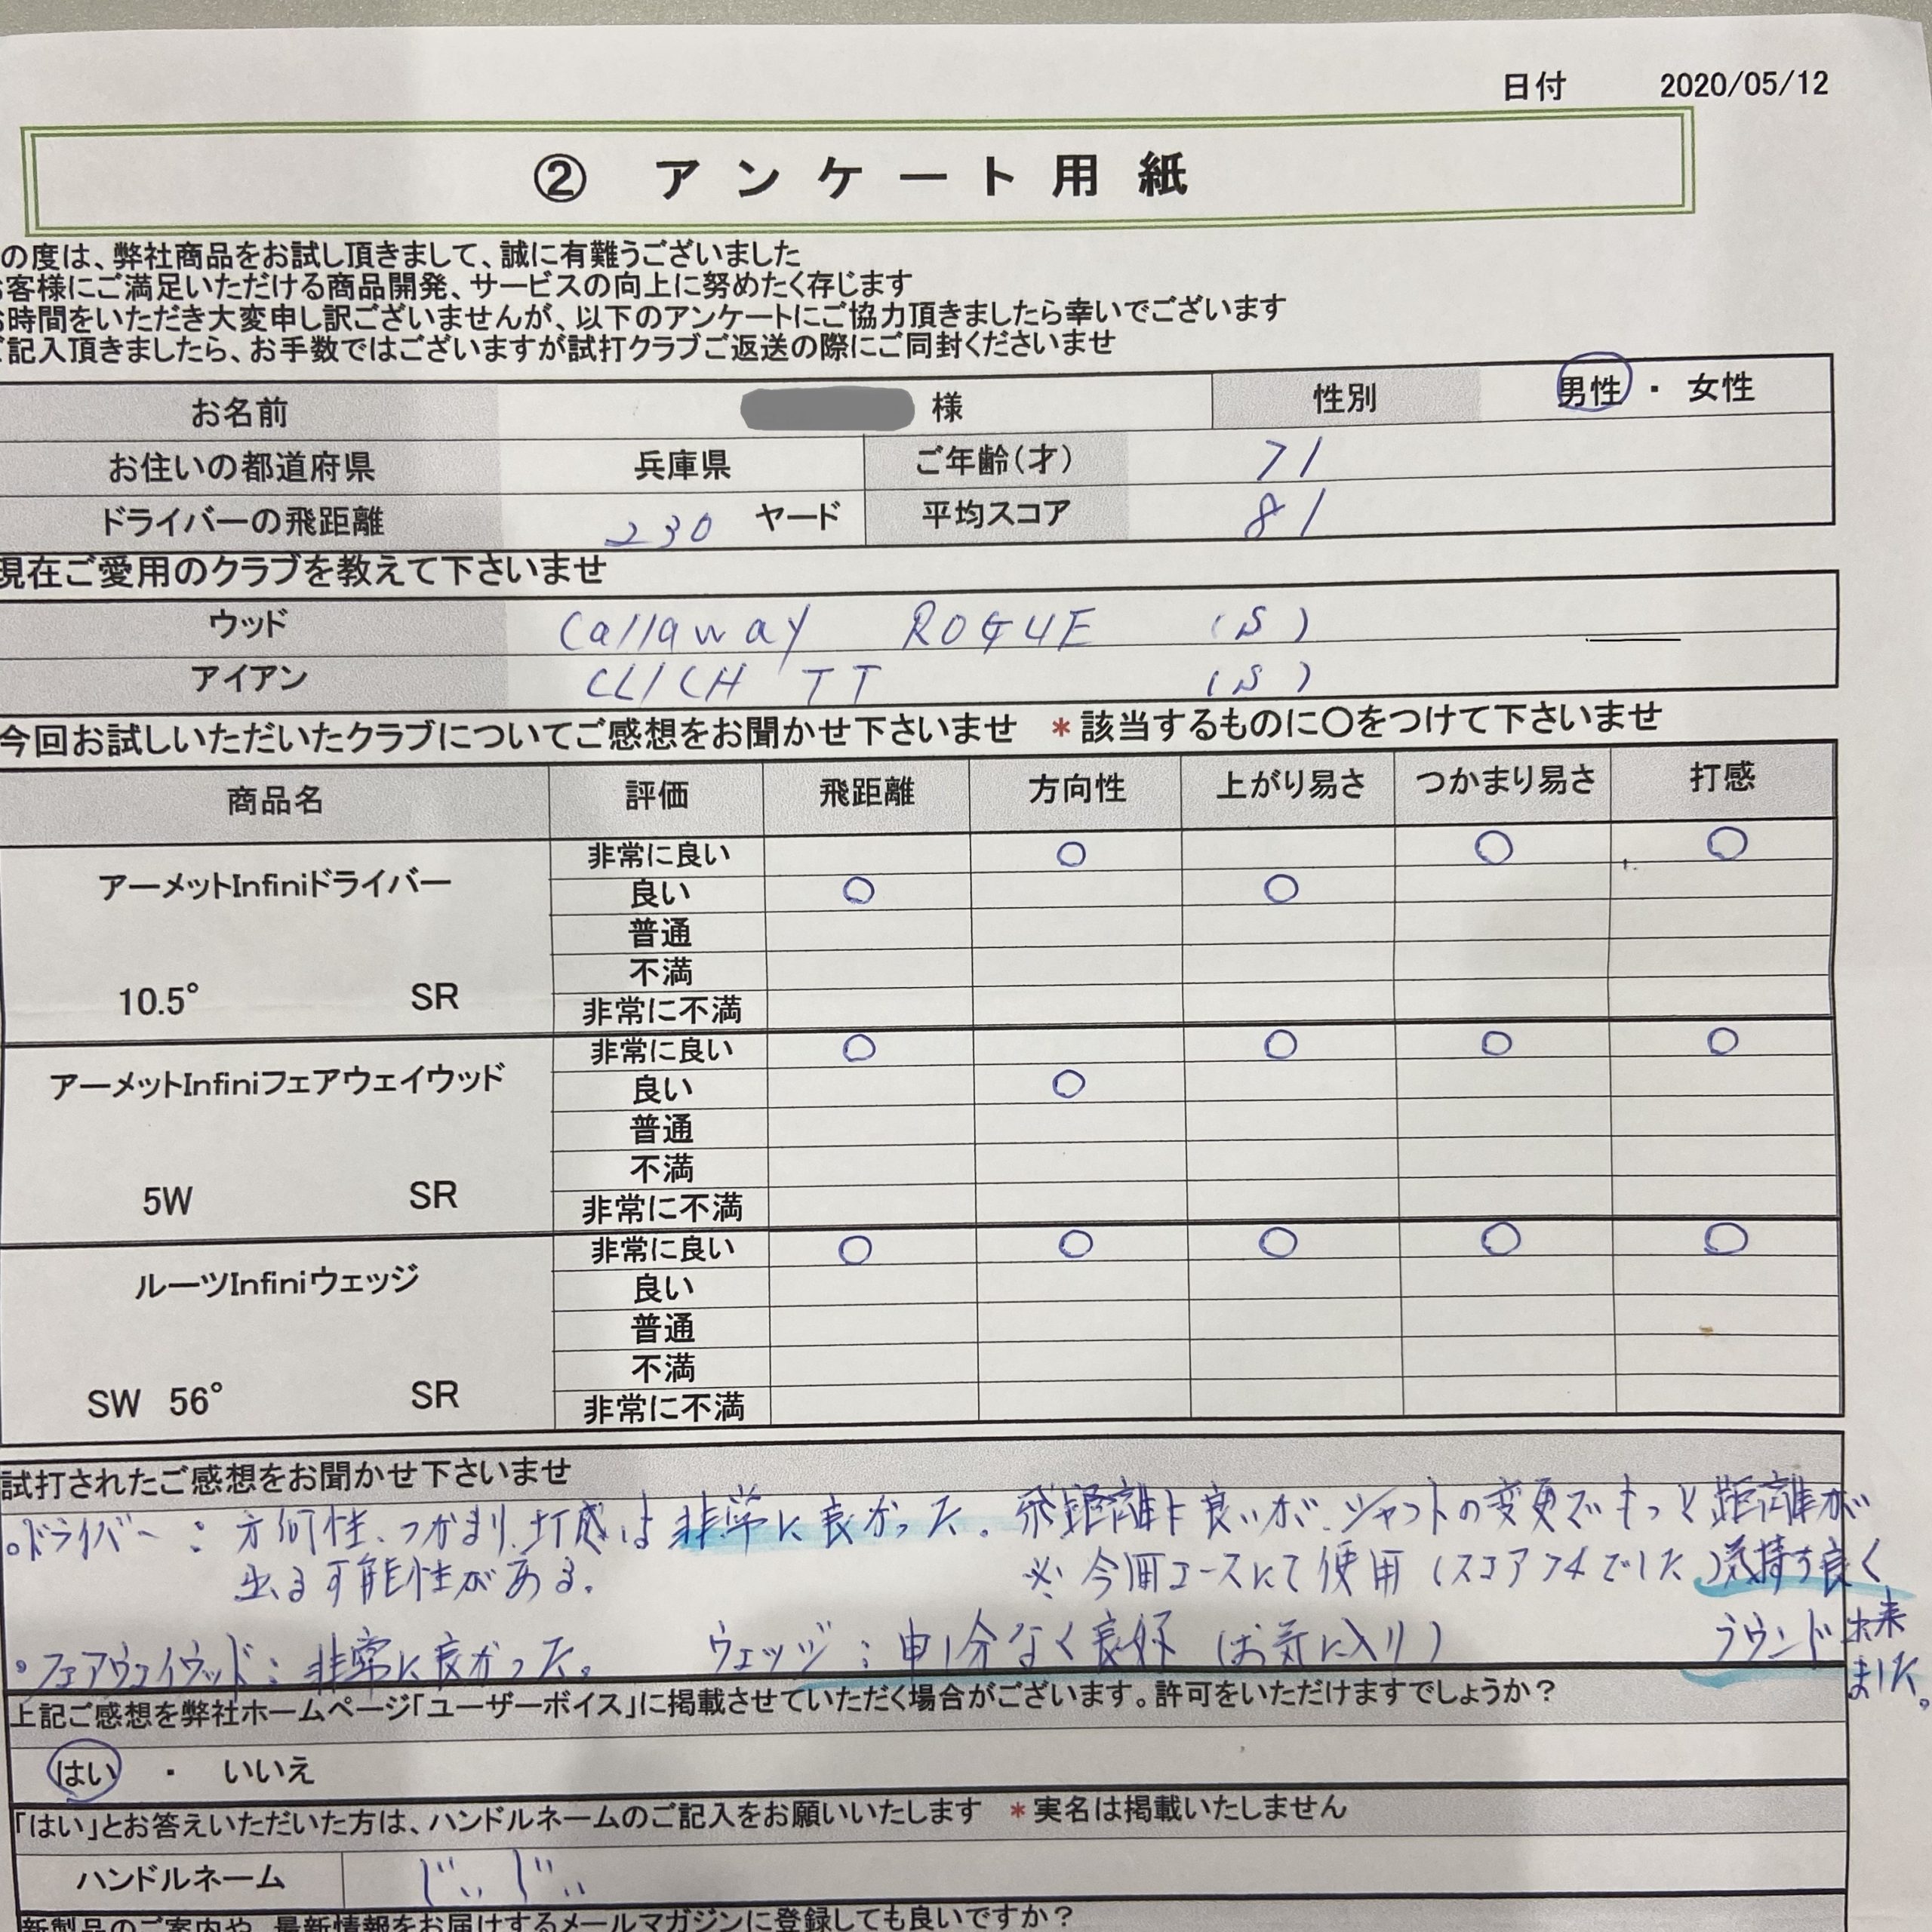 日付 2020/05/12
② アンケート用紙
の度は、弊社商品をお試し頂きまして、誠に有難うございました
お客様にご満足いただける商品開発、サービスの向上に努めたく存じます
お時間をいただき大変申し訳ございませんが、以下のアンケートにご協力頂きましたら幸いでございます
ご記入頂きましたら、お手数ではございますが試打クラブご返送の際にご同封くださいませ
お名前 様 性別 男性 ・ 女性
お住いの都道府県 兵庫県 ご年齢(才) 71
ドライバーの飛距離 230 ヤード 平均スコア 81
現在ご愛用のクラブを教えて下さいませ
ウッド Callaway ROGUE (S)
アイアン CLICH TT (S)
今回お試しいただいたクラブについてご感想をお聞かせ下さいませ *該当するものに〇をつけて下さいませ
商品名 評価 飛距離 方向性 上がり易さ つかまり易さ 打感
アーメットInfiniドライバー 非常に良い ○ ○ ○
良い ○ ○
普通
不満
10.5° SR 非常に不満
アーメットInfiniフェアウェイウッド 非常に良い ○ ○ ○ ○
良い ○
普通
不満
5W SR 非常に不満
ルーツInfiniウェッジ 非常に良い ○ ○ ○ ○ ○
良い
普通
不満
SW 56° SR 非常に不満
試打されたご感想をお聞かせ下さいませ
○ドライバー：方向性、つかまり、打感は非常に良かった。飛距離は良いが、シャフトの変更でもっと距離が
出る可能性がある。 ※今回コースにて使用(スコア74でした)気持ち良く
ラウンド出来
ました。
○フェアウェイウッド：非常に良かった。 ウェッジ：申し分なく良好(お気に入り)
上記ご感想を弊社ホームページ「ユーザーボイス」に掲載させていただく場合がございます。許可をいただけますでしょうか？
はい ・ いいえ
「はい」とお答えいただいた方は、ハンドルネームのご記入をお願いいたします *実名は掲載いたしません
ハンドルネーム じぃじぃ
新製品のご案内や、最新情報をお届けするメールマガジンに登録しても良いですか？